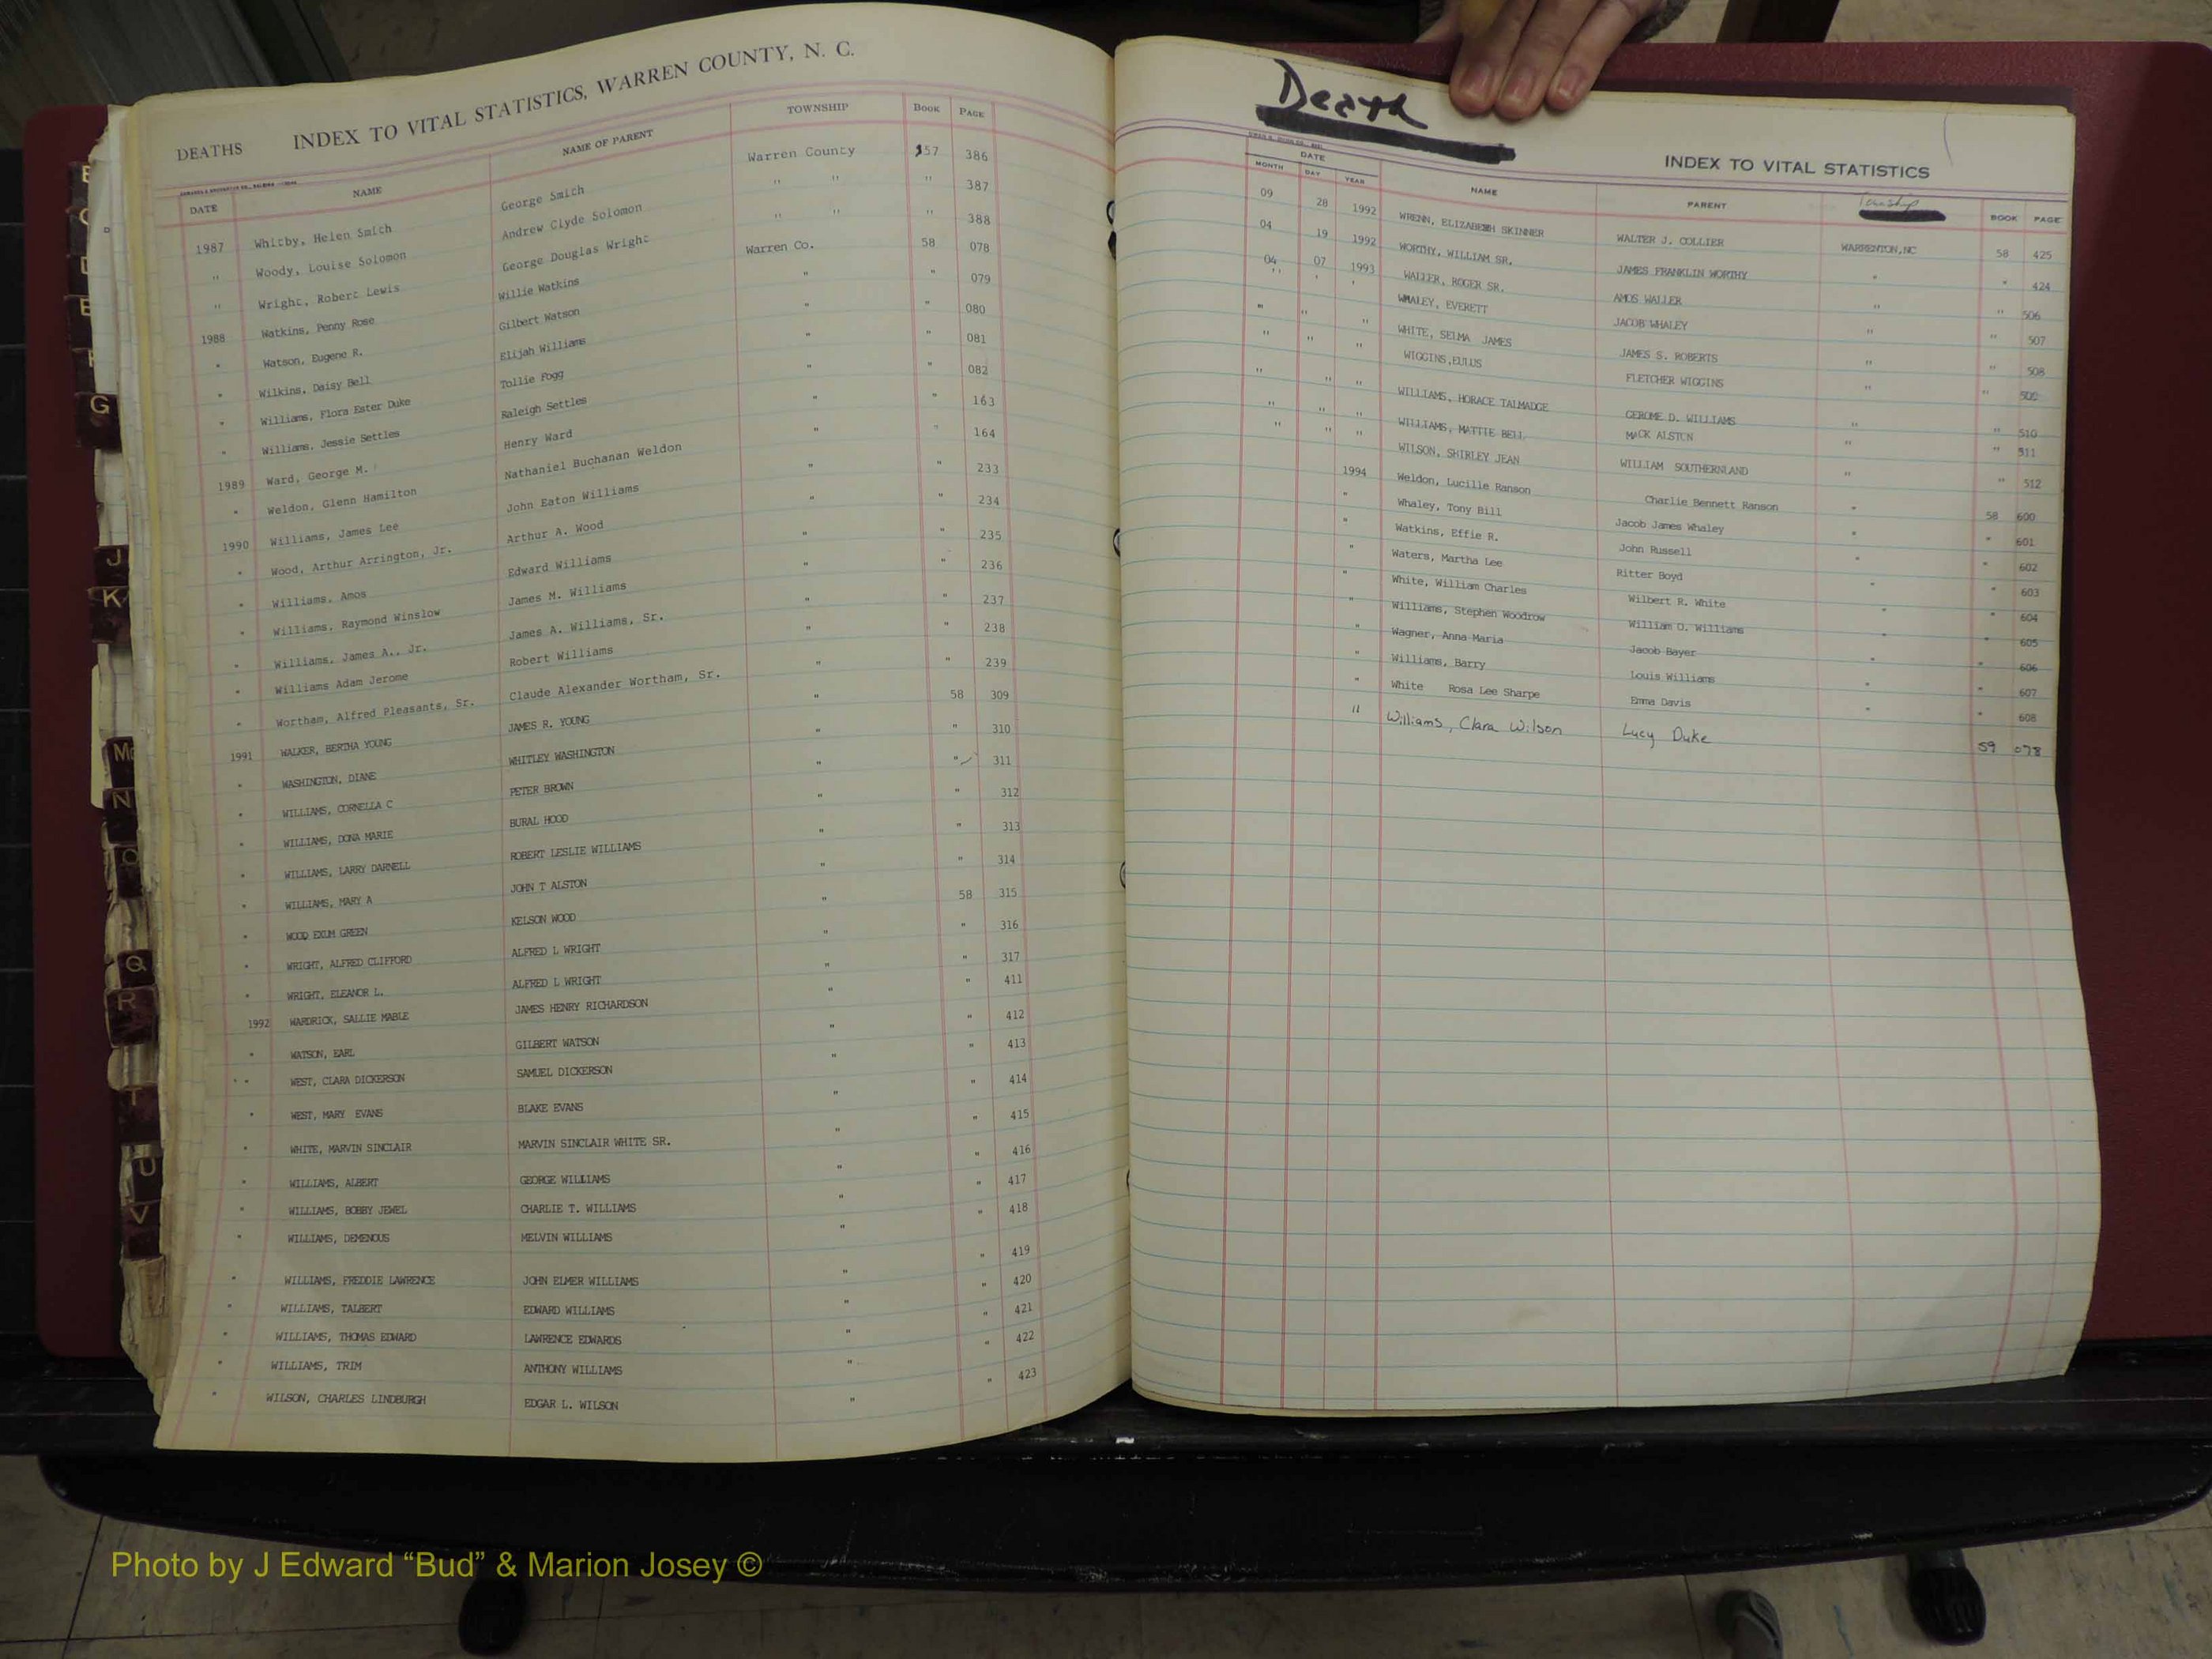 INDEX TO VITAL STATISTICS, WARREN COUNTY, N. C.
DEATHS
DATE NAME NAME OF PARENT TOWNSHIP BOOK PAGE
1987 Whitby, Helen Smith George Smith Warren County 57 386
" Woody, Louise Solomon Andrew Clyde Solomon " " " 387
" Wright, Robert Lewis George Douglas Wright " " " 388
1988 Watkins, Penny Rose Willie Watkins Warren Co. 58 078
" Watson, Eugene R. Gilbert Watson " " 079
" Wilkins, Daisy Bell Elijah Williams " " 080
" Williams, Flora Ester Duke Tollie Fogg " " 081
" Williams, Jessie Settles Raleigh Settles " " 082
1989 Ward, George M. Henry Ward " " 163
" Weldon, Glenn Hamilton Nathaniel Buchanan Weldon " " 164
1990 Williams, James Lee John Eaton Williams " " 233
" Wood, Arthur Arrington, Jr. Arthur A. Wood " " 234
" Williams, Amos Edward Williams " " 235
" Williams, Raymond Winslow James M. Williams " " 236
" Williams, James A., Jr. James A. Williams, Sr. " " 237
" Williams Adam Jerome Robert Williams " " 238
" Wortham, Alfred Pleasants, Sr. Claude Alexander Wortham, Sr. " " 239
1991 WALKER, BERTHA YOUNG JAMES R. YOUNG " 58 309
" WASHINGTON, DIANE WHITLEY WASHINGTON " " 310
" WILLIAMS, CORNELLA C PETER BROWN " " 311
" WILLIAMS, DONA MARIE BURAL HOOD " " 312
" WILLIAMS, LARRY DARNELL ROBERT LESLIE WILLIAMS " " 313
" WILLIAMS, MARY A JOHN T ALSTON " " 314
" WOOD EXUM GREEN KELSON WOOD " 58 315
" WRIGHT, ALFRED CLIFFORD ALFRED L WRIGHT " " 316
" WRIGHT, ELEANOR L. ALFRED L WRIGHT " " 317
1992 WARDRICK, SALLIE MABLE JAMES HENRY RICHARDSON " " 411
" WATSON, EARL GILBERT WATSON " " 412
" WEST, CLARA DICKERSON SAMUEL DICKERSON " " 413
" WEST, MARY EVANS BLAKE EVANS " " 414
" WHITE, MARVIN SINCLAIR MARVIN SINCLAIR WHITE SR. " " 415
" WILLIAMS, ALBERT GEORGE WILLIAMS " " 416
" WILLIAMS, BOBBY JEWEL CHARLIE T. WILLIAMS " " 417
" WILLIAMS, DEMENOUS MELVIN WILLIAMS " " 418
" WILLIAMS, FREDDIE LAWRENCE JOHN ELMER WILLIAMS " " 419
" WILLIAMS, TALBERT EDWARD WILLIAMS " " 420
" WILLIAMS, THOMAS EDWARD LAWRENCE EDWARDS " " 421
" WILLIAMS, TRIM ANTHONY WILLIAMS " " 422
" WILSON, CHARLES LINDBURGH EDGAR L. WILSON " " 423
Death
INDEX TO VITAL STATISTICS
DATE
MONTH DAY YEAR NAME PARENT Township BOOK PAGE
09 28 1992 WRENN, ELIZABETH SKINNER WALTER J. COLLIER WARRENTON,NC 58 425
04 19 1992 WORTHY, WILLIAM SR. JAMES FRANKLIN WORTHY " " 424
04 07 1993 WALLER, ROGER SR. AMOS WALLER " " 506
" " " WHALEY, EVERETT JACOB WHALEY " " 507
" " " WHITE, SELMA JAMES JAMES S. ROBERTS " " 508
" " " WIGGINS,EULUS FLETCHER WIGGINS " "
" " " WILLIAMS, HORACE TALMADGE GEROME D. WILLIAMS " " 510
" " " WILLIAMS, MATTIE BELL MACK ALSTON " " 511
" " " WILSON, SHIRLEY JEAN WILLIAM SOUTHERNLAND " " 512
1994 Weldon, Lucille Ranson Charlie Bennett Ranson " 58 600
" Whaley, Tony Bill Jacob James Whaley " " 601
" Watkins, Effie R. John Russell " " 602
" Waters, Martha Lee Ritter Boyd " " 603
" White, William Charles Wilbert R. White " " 604
" Williams, Stephen Woodrow William O. Williams " " 605
" Wagner, Anna Maria Jacob Bayer " " 606
" Williams, Barry Louis Williams " " 607
" White Rosa Lee Sharpe Emma Davis " " 608
" Williams, Clara Wilson Lucy Duke 59 078
G
J
K
Mc
N
O
Q
R
T
U
V
Photo by J Edward “Bud” & Marion Josey ©